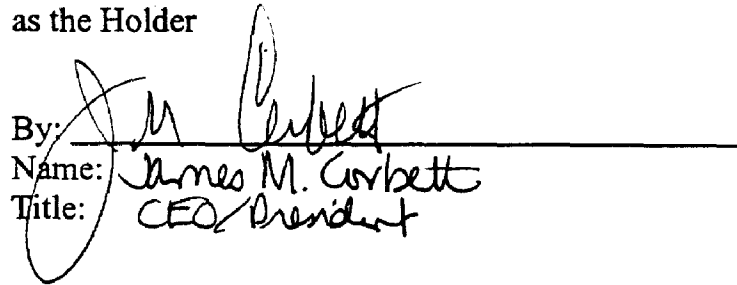 as the Holder
By: J M Corbett
Name: James M. Corbett
Title: CEO/President